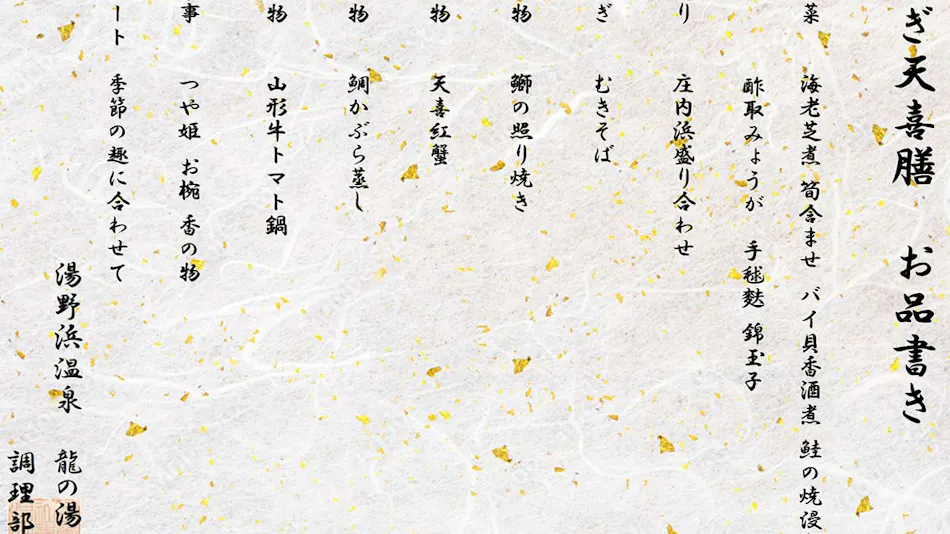 ぎ天喜膳 お品書き
菜 海老芝煮 筍含ませ バイ貝香酒煮 鮭の焼浸
酢取みょうが 手毬麩 錦玉子
り 庄内浜盛り合わせ
ぎ むきそば
物 鰤の照り焼き
物 天喜紅蟹
物 鯛かぶら蒸し
物 山形牛トマト鍋
事 つや姫 お椀 香の物
ート 季節の趣に合わせて
湯野浜温泉 龍の湯
調理部